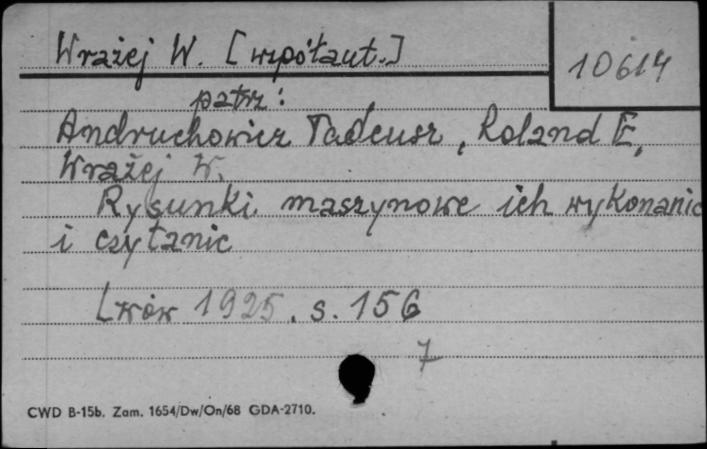 Wrażej W. [współaut.]
10614
patrz:
Andruchowicz Tadeusz, Roland E,
Wrażej W.
Rysunki maszynowe ich wykonanie
i czytanie
Lwów 1925. s. 156
7
CWD B-15b. Zam. 1654/Dw/On/68 GDA-2710.